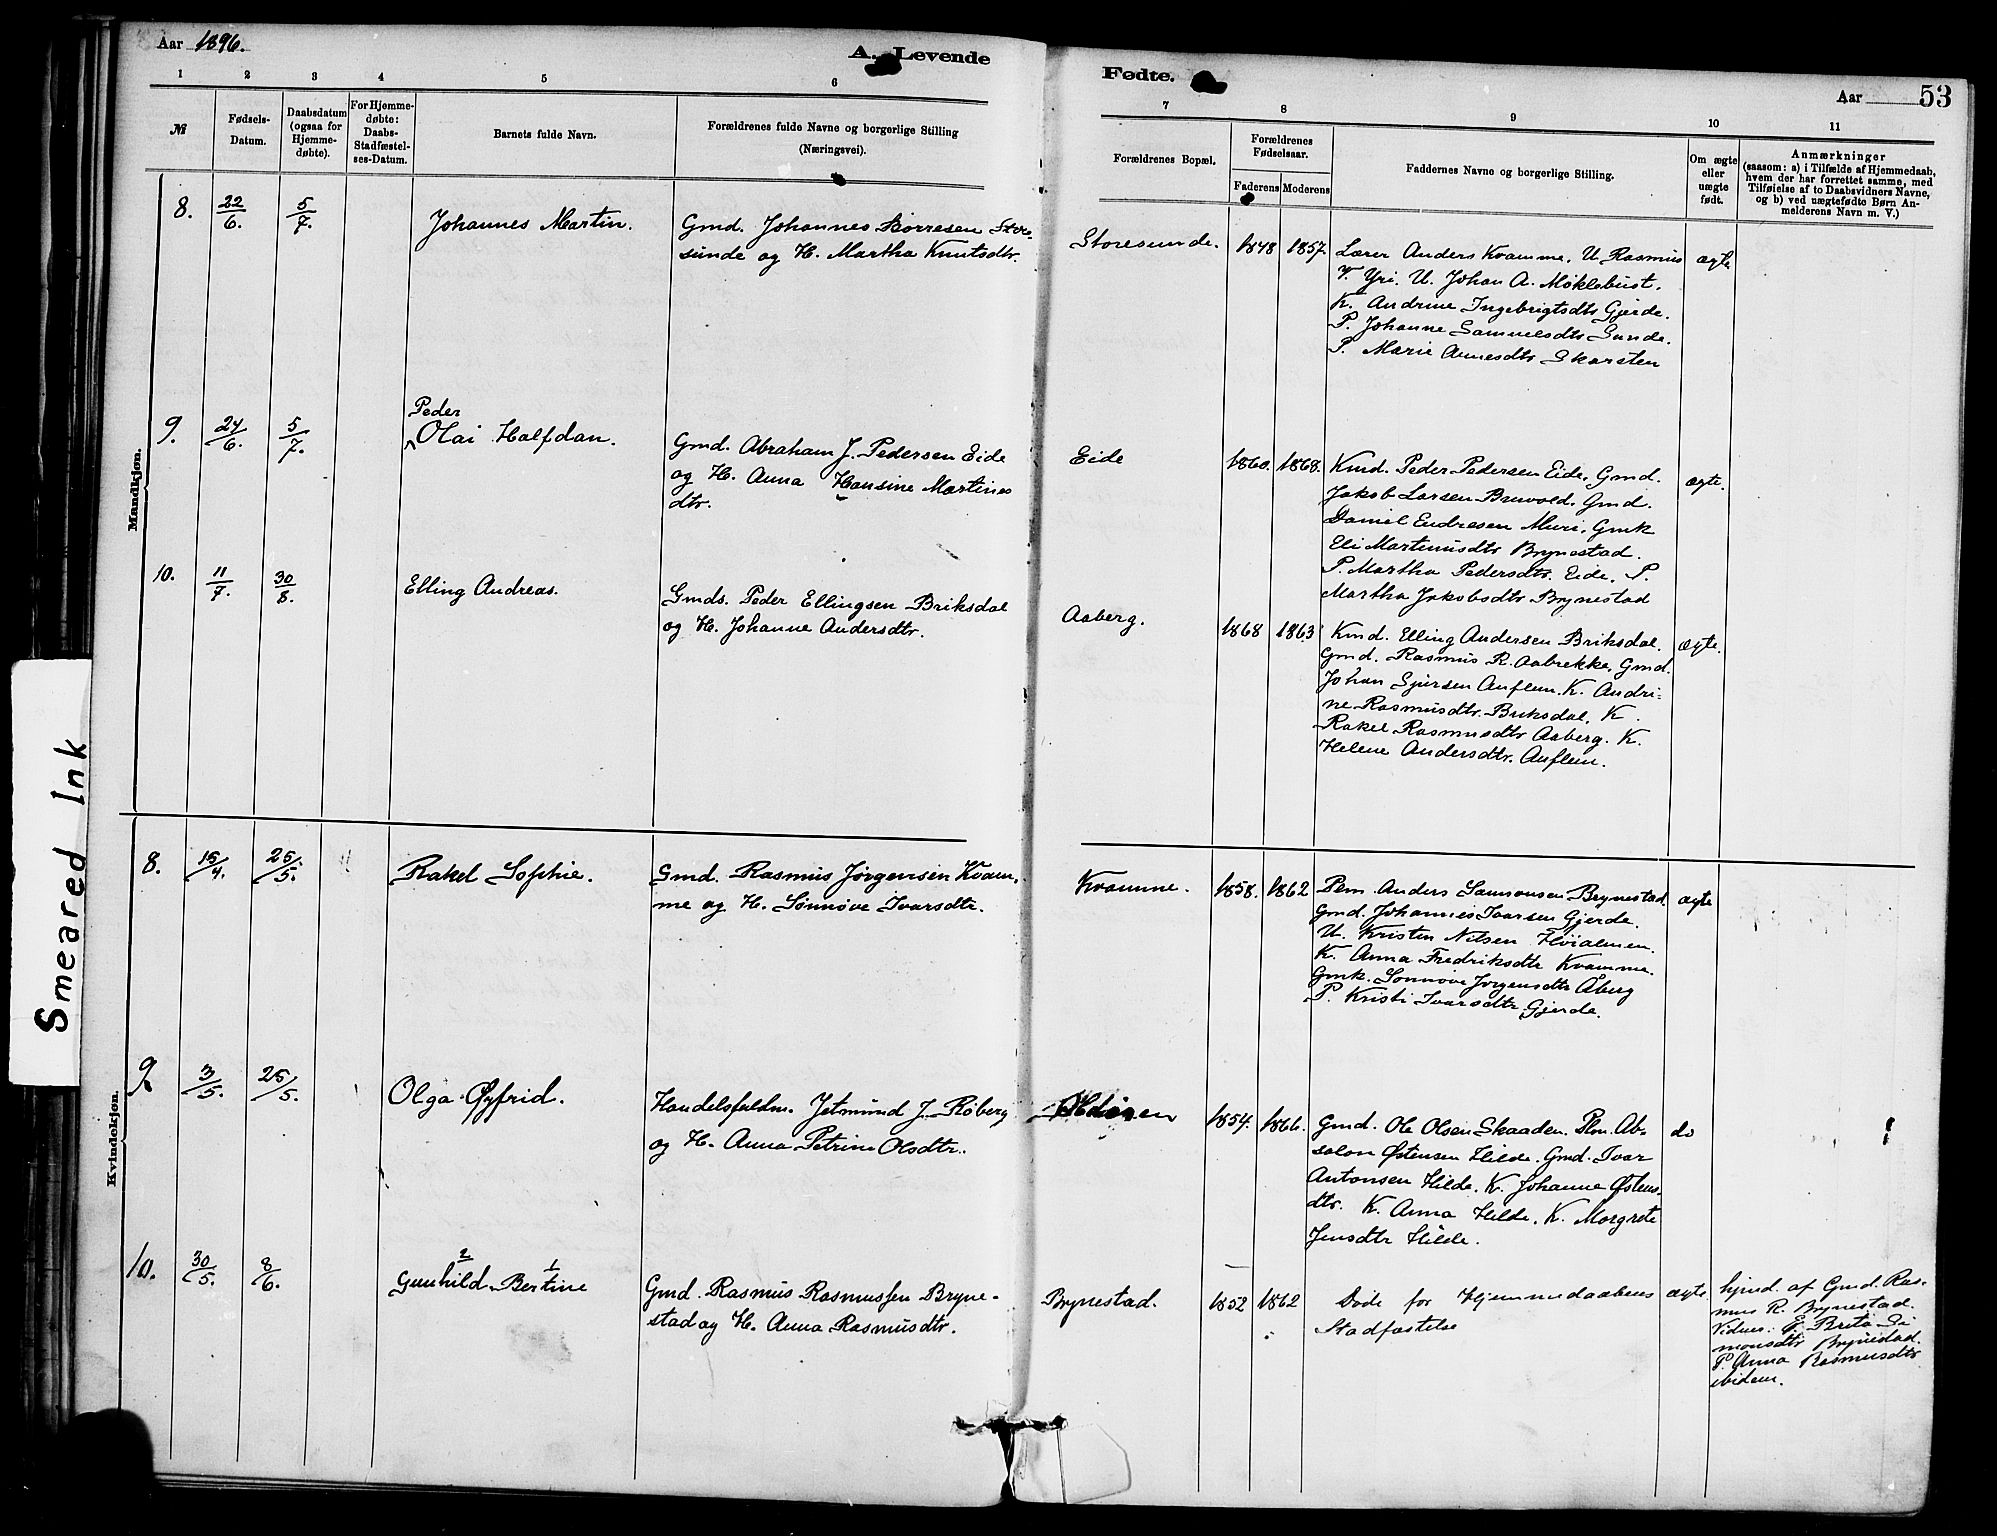 Aar 1896.
A. Levende
Fødte.
Aar
53
1 2 3 4 5 6 7 8 9 10 11
№
Fødsels-
Datum.
Daabsdatum
(ogsaa for
Hjemme-
døbte).
For Hjemme-
døbte:
Daabs-
Stadfæstel-
ses-Datum.
Barnets fulde Navn.
Forældrenes fulde Navne og borgerlige Stilling
(Næringsvei).
Forældrenes Bopæl.
Forældrenes
Fødselsaar.
Faderens Moderens
Faddernes Navne og borgerlige Stilling.
Om ægte
eller
uægte
født.
Anmærkninger
(saasom: a) i Tilfælde af Hjemmedaab,
hvem der har forrettet samme, med
Tilføielse af to Daabsvidners Navne,
og b) ved uægtefødte Børn An-
melderens Navn m. V.)
Mandkjøn.
8. 22/6. 5/7. Johannes Martin.
Gmd. Johannes Børresen Store-
sunde og H. Martha Knutsdtr.
Storesunde. 1848 1857.
Lærer Anders Kvamme. U. Rasmus
V. Yri. U. Johan A. Møklebust.
K. Andrine Ingebrigtsdtr Gjerde.
P. Johanne Samuelsdtr Sunde.
P. Marie Annesdtr Skarsten
ægte
9. 24/6. 5/7.
Peder
Olai Halfdan.
Gmd. Abraham J. Pedersen Eide
og H. Anna Hansine Martines
dtr.
Eide 1860. 1868.
Kmd. Peder Pedersen Eide, Gmd.
Jakob Larsen Bruvold. Gmd.
Daniel Endresen Muri, Gmk
Eli Martinusdtr Brynestad.
P. Martha Pedersdtr. Eide, P.
Martha Jakobsdtr Brynestad
ægte.
10. 11/7. 30/8. Elling Andreas.
Gmds. Peder Ellingsen Briksdal
og H. Johanne Andersdtr.
Aaberg. 1868 1863
Kmd. Elling Andersen Briksdal.
Gmd. Rasmus R. Aabrekke, Gmd.
Johan Sjursen Auflem. K. Andri-
ne Rasmusdtr. Briksdal. K.
Rakel Rasmusdtr Aaberg. K.
Helene Andersdtr. Auflem.
ægte.
Kvindekjøn.
8. 15/4. 25/5. Rakel Sophie.
Gmd. Rasmus Jørgensen Kvam-
me og H. Sønnøve Ivarsdtr.
Kvamme. 1858. 1862
Pem. Anders Samonsen Brynestad.
Gmd. Johannes Ivarsen Gjerde.
U. Kristen Nilsen Høialmen.
K. Anna Fredriksdtr Kvamme.
Gmk. Sønnøve Jørgensdtr Åberg
P. Kristi Ivarsdtr. Gjerde.
ægte
9. 3/5. 25/5. Olga Øyfrid.
Handelsfuldm. Jetmund J. Røberg
og H. Anna Petrine Olsdtr.
1854. 1866.
Gmd. Ole Olsen Skaaden. Plm. Ab-
salon Østensen Hilde. Gmd. Ivar
Antonsen Hilde. K. Johanne Østens-
dtr. K. Anna Hilde. K. Margrete
Jensdtr Hilde.
do
10. 30/5. 8/6.
2 1
Gunhild Bertine
Gmd. Rasmus Rasmussen Bryne-
stad og H. Anna Rasmusdtr.
Brynestad. 1852 1862
Døde før Hjemmedaabens
Stadfæstelse
ægte
hjmd. af Gmd. Ras-
mus R. Brynestad.
Vidner: E. Brita Si
monsdtr Brynestad.
P. Anna Rasmusdtr
ibidem.
Smeared Ink